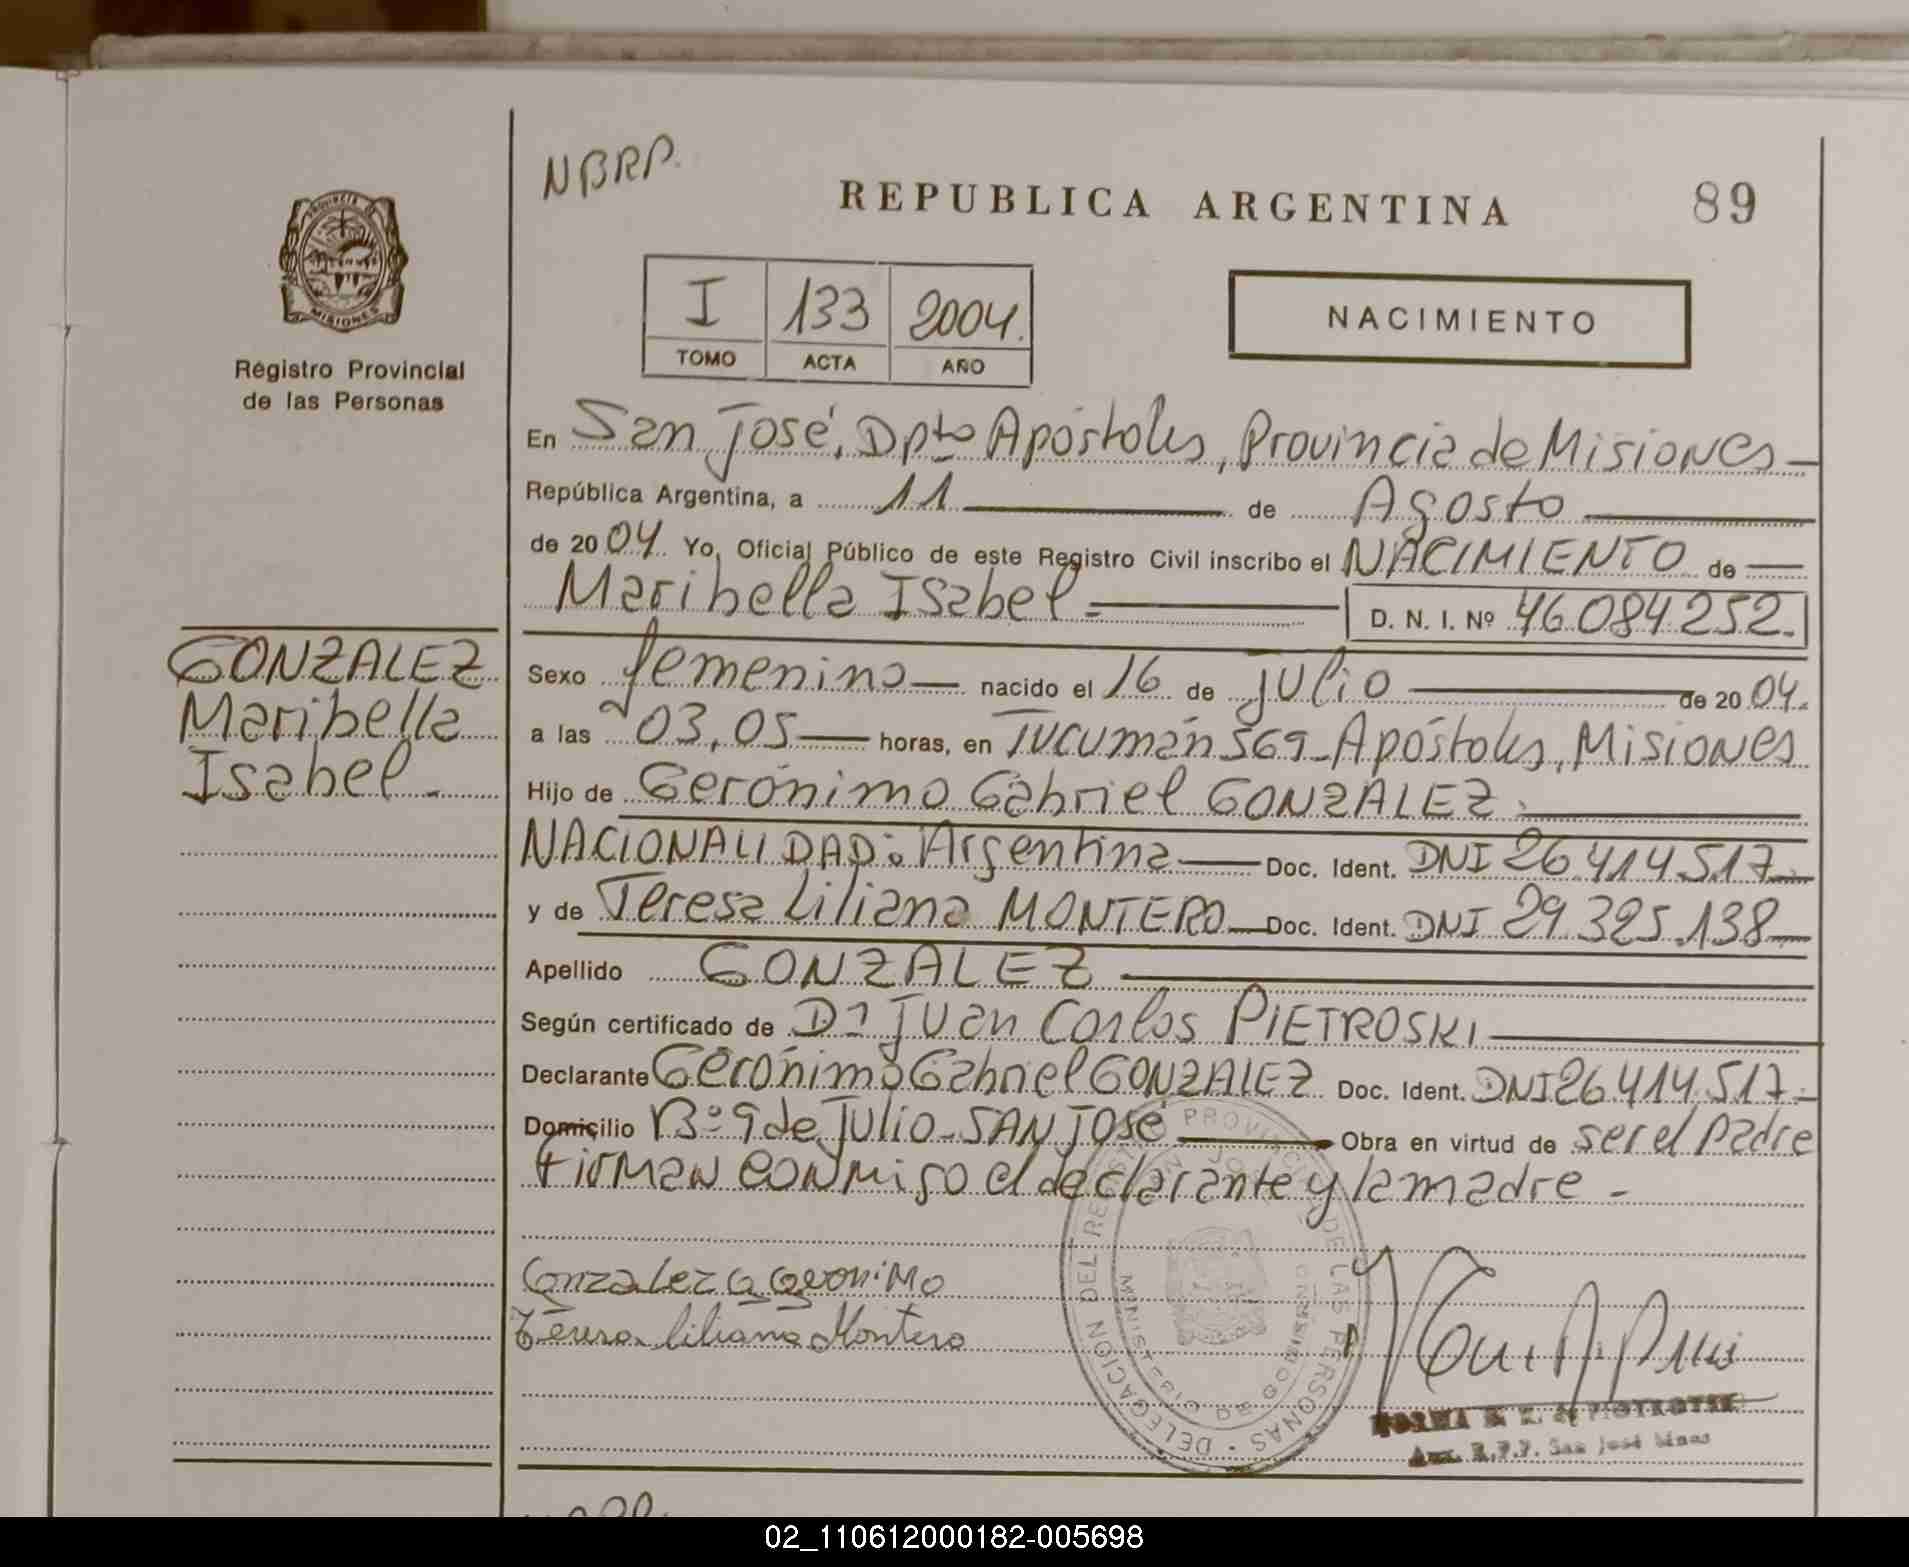 NBRP.
REPUBLICA ARGENTINA
89
PROVINCIA DE
MISIONES
Registro Provincial
de las Personas
I 133 2004.
TOMO ACTA AÑO
NACIMIENTO
En San José, Dpto Apóstoles, Provincia de Misiones
República Argentina, a 11 de Agosto
de 2004 Yo, Oficial Público de este Registro Civil inscribo el NACIMIENTO de
Maribella Isabel.= D. N. I. Nº 46.084.252.
GONZALEZ
Maribella
Isabel.
Sexo femenino nacido el 16 de julio de 2004.
a las 03,05 horas, en Tucumán 569 - Apóstoles, Misiones
Hijo de Gerónimo Gabriel GONZALEZ.
NACIONALIDAD: Argentina Doc. Ident. DNI 26.414.517
y de Teresa Liliana MONTERO Doc. Ident. DNI 29.325.138
Apellido GONZALEZ
Según certificado de Dr Juan Carlos PIETROSKI
Declarante Gerónimo Gabriel GONZALEZ Doc. Ident. DNI 26.414.517
Domicilio Bº 9 de Julio - SAN JOSÉ Obra en virtud de ser el padre
firman conmigo el declarante y la madre -
Gonzalez G Geronimo
Teresa Liliana Montero
DELEGACION DEL REGISTRO PROVINCIAL DE LAS PERSONAS
SAN JOSE
MINISTERIO DE GOBIERNO
NORMA
Aux. R.P.P. San José Mnes
02_110612000182-005698